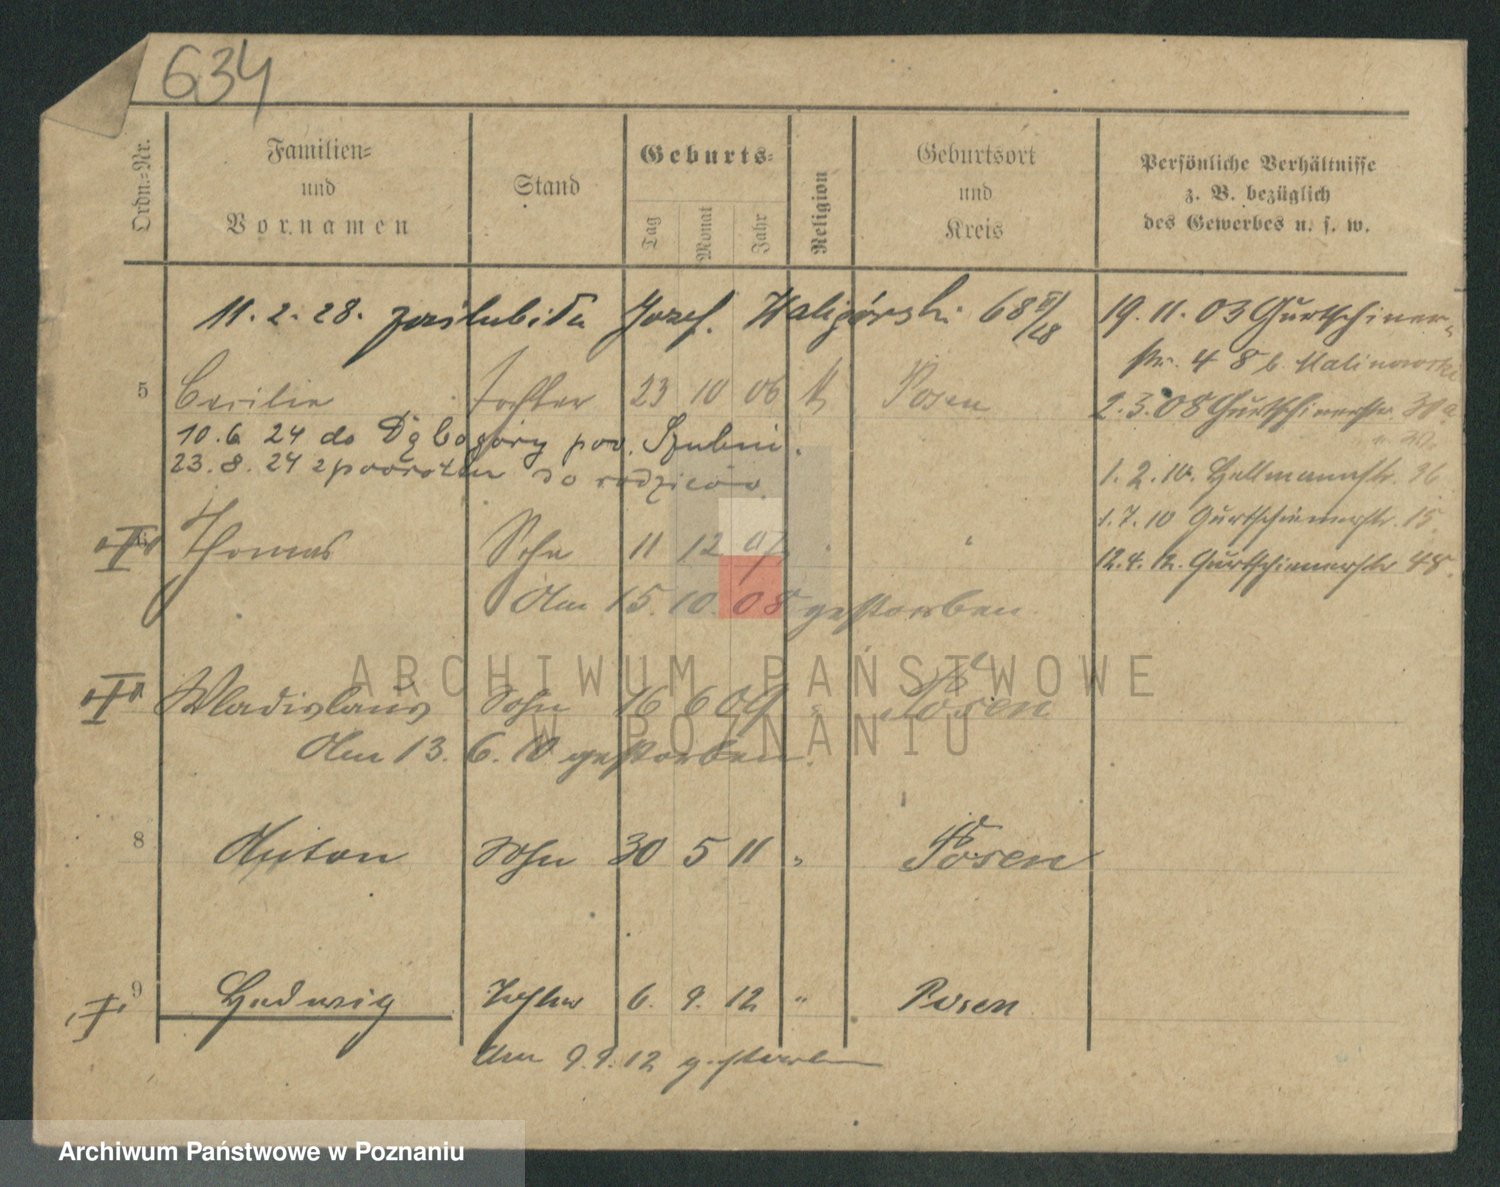 634
Ordn.=Nr.
Familien=
und
Vornamen
Stand
Geburts=
Tag
Monat
Jahr
Religion
Geburtsort
und
Kreis
Persönliche Verhältnisse
z. B. bezüglich
des Gewerbes u. s. w.
11. 2. 28. zaślubiła Jozef. Waligórski 68
19. 11. 03 Gurtschiner-
str. 48 b. Malinowski
5 Cecilie Tochter 23 10 06 k Posen
2. 3. 08 Gurtschinerstr. 30a
10. 6. 24 do Dąbogóry pow. Szubin.
23. 8. 24 zpowrotem do rodziców
1. 2. 10. Hellmannstr. 16
1. 7. 10 Gurtschinerstr. 15.
6 Thomas Sohn 11 12 07 " "
12. 4. 12. Gurtschinerstr 48.
Am 15. 10. 08 gestorben
Wladislaus Sohn 16 6 09 " Posen
Am 13. 6. 10 gestorben.
8 Anton Sohn 30 5 11 " Posen
9 Hedwig Tochter 6. 9. 12 " Posen
Am 9. 9. 12 gestorben
ARCHIWUM PAŃSTWOWE
W POZNANIU
Archiwum Państwowe w Poznaniu